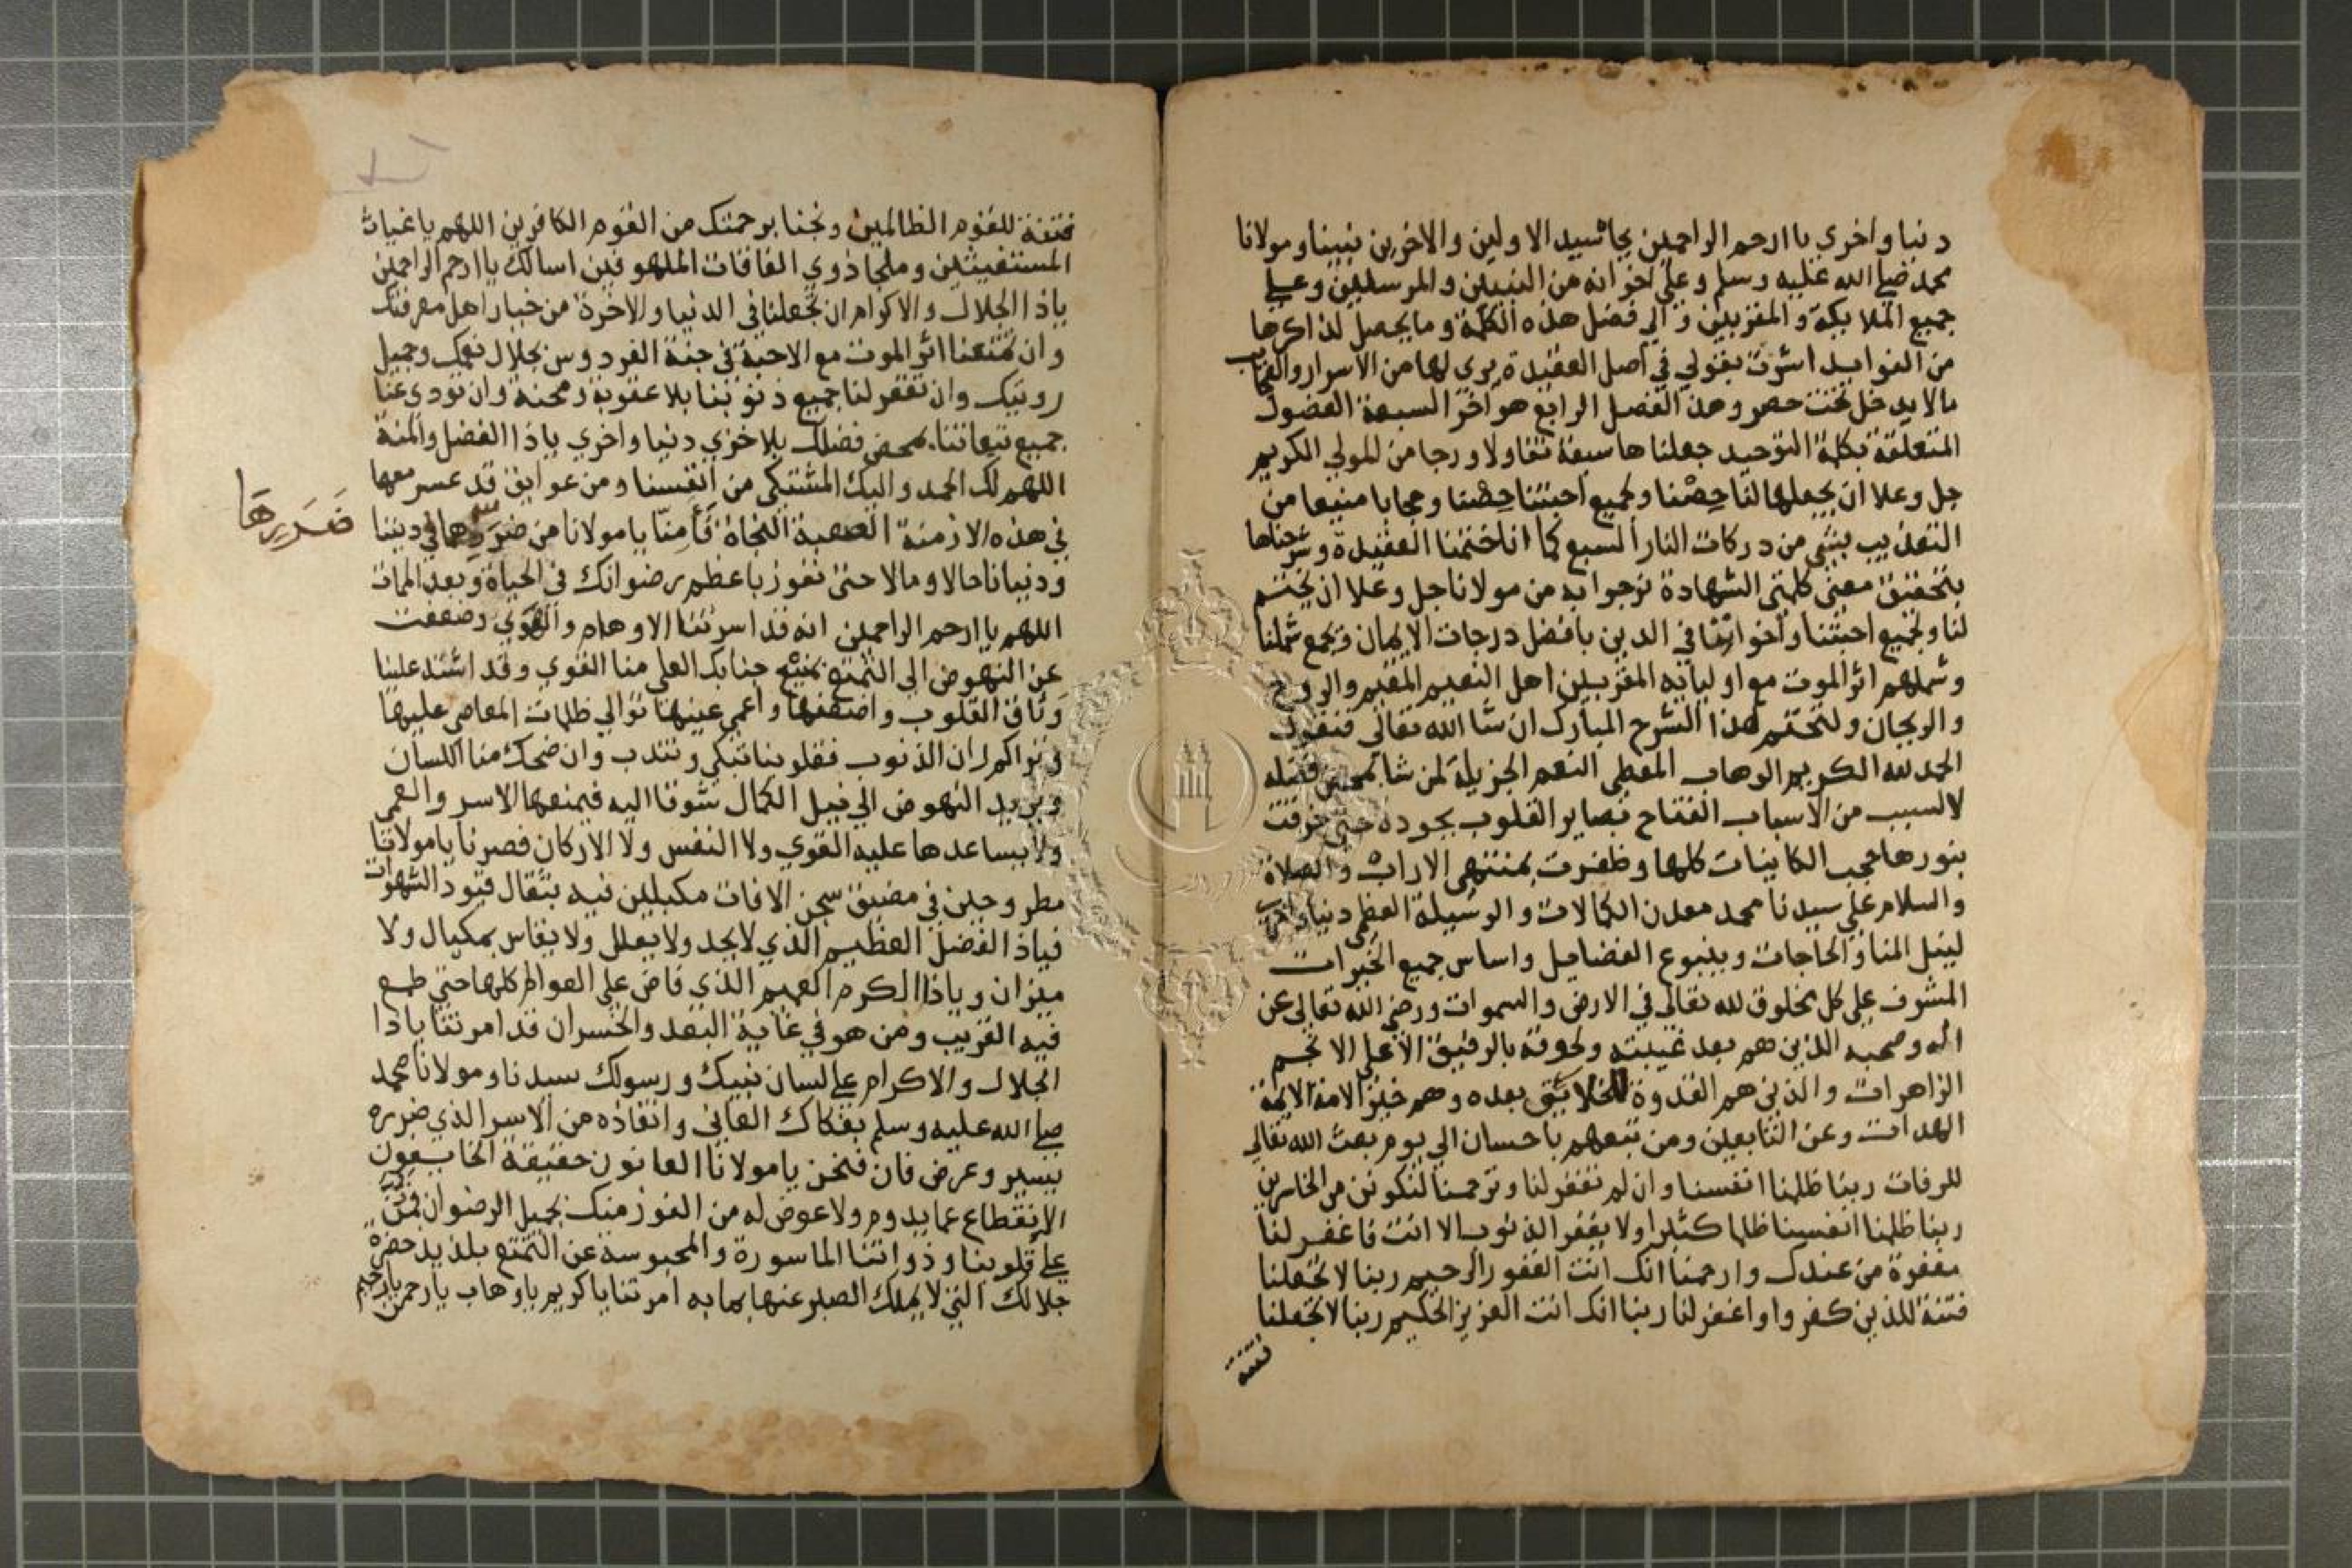 دنيا واخري يا ارحم الراحمين بجاه سيد الاولين والاخرين نبينا ومولانا
محمد صلى الله عليه وسلم وعلى اخوانه من النبيين والمرسلين وعلي
جميع الملايكة والمقربين والي فضل هذه الكلمة وما يحصل لذاكرها
من الفوايد اشرت بقولي في اصل العقيدة يري لها من الاسرار والعجايب
مالا يدخل تحت حصر وهذا الفصل الرابع هو اخر السبعة الفصول
المتعلقة بكلمة التوحيد جعلناها سبعة تفاولا ورجا من المولي الكريم
جل وعلا ان يجعلها لنا حصنا ولجميع احبتنا حصنا وحجابا منيعا من
التعذيب بشي من دركات النار السبع كما انا ختمنا العقيدة وشرحناها
بتحقيق معني كلمتي الشهادة نرجوا به من مولانا جل وعلا ان يختم
لنا ولجميع احبتنا واخواننا في الدين بافضل درجات الايمان ويجمع شملنا
وشملهم اثر الموت مع اوليايه المقربين اهل النعيم المقيم والروح
والريحان ولنختم هذا الشرح المبارك ان شا الله تعالي فنقول
الحمد لله الكريم الوهاب المعطي النعم الجزيلة لمن شا بمحض فضله
لا لسبب من الاسباب الفتاح بصاير القلوب بجوده حتي خرقت
بنورها حجب الكاينات كلها وظفرت بمنتهي الاراب والصلاة
والسلام علي سيدنا محمد معدن الكمالات والوسيلة العظمي دنيا واخري
لنيل المنا والحاجات وينبوع الفضايل واساس جميع الخيرات
المشرف علي كل مخلوق لله تعالي في الارض والسموات ورضي الله تعالي عن
اله وصحبه الذين هم بعد غيبته ولحوقه بالرفيق الاعلي الانجم
الزاهرات والذين هم القدوة للخلايق بعده وهم خير الامة الايمة
الهدات وعن التابعين ومن تبعهم باحسان الي يوم بعث الله تعالي
للرفات ربنا ظلمنا انفسنا وان لم تغفر لنا وترحمنا لنكونن من الخاسرين
ربنا ظلمنا انفسنا ظلما كثيرا ولا يغفر الذنوب الا انت فاغفر لنا
مغفرة من عندك وارحمنا انك انت الغفور الرحيم ربنا لا تجعلنا
فتنة للذين كفروا واغفر لنا ربنا انك انت العزيز الحكيم ربنا لا تجعلنا
فتنة
فتنة للقوم الظالمين ونجنا برحمتك من القوم الكافرين اللهم يا غياث
المستغيثين وملجا ذوي الفاقات الملهوفين اسالك يا ارحم الراحمين
ياذا الجلال والاكرام ان تجعلنا في الدنيا والاخرة من خيار اهل معرفتك
وان تمتعنا اثر الموت مع الاحبة في جنة الفردوس بجلال نعمك وجميل
رويتك وان تغفر لنا جميع ذنوبنا بلا عقوبة ومحنة وان تودي عنا
جميع تبعاتنا بمحض فضلك بلا خزي دنيا واخري ياذا الفضل والمنة
اللهم لك الحمد واليك المشتكي من انفسنا ومن عوايق قد عسر معها
في هذه الازمنة الصعبة النجاة فامنا يا مولانا من ضررهما في ديننا
ضررها
ودنيانا حالا ومالا حتي نفوز باعظم رضوانك في الحياة وبعد الممات
اللهم يا ارحم الراحمين انه قد اسرتنا الاوهام والهوي وضعفت
عن النهوض الي التمتع بمنيع جنابك العلي منا القوي وقد اشتد علينا
وثاق القلوب واضعفها واعمي عينها توالي ظلمات المعاصي عليها
وتراكم ران الذنوب فقلوبنا تبكي وتندب وان ضحك منا اللسان
وتريد النهوض الي نيل الكمال شوقا اليه فيمنعها الاسر والعمي
ولا يساعدها عليه القوي ولا النفس ولا الاركان فصرنا يا مولانا
مطروحين في مضيق سجن الافات مكبلين فيه بثقال قيود الشهوات
فياذا الفضل العظيم الذي لا يحد ولا يعلل ولا يقاس بمكيال ولا
ميزان وياذا الكرم العميم الذي فاض علي العوالم كلها حتي طمع
فيه القريب ومن هو في غاية البعد والخسران قد امرتنا ياذا
الجلال والاكرام علي لسان نبيك ورسولك سيدنا ومولانا محمد
صلي الله عليه وسلم بفكاك العاني وانقاذه من الاسر الذي ضرره
يسير وعرض فان فنحن يا مولانا العانون حقيقة الخايفون
الانقطاع عما يدوم ولا عوض له من الفوز منك بجميل الرضوان فمن
علي قلوبنا وذواتنا الماسورة والمحبوسة عن التمتع بلذيذ حضرة
جلالك التي لا يملك الصبر عنها بما به امرتنا يا كريم يا وهاب يا رحمن يا رحيم